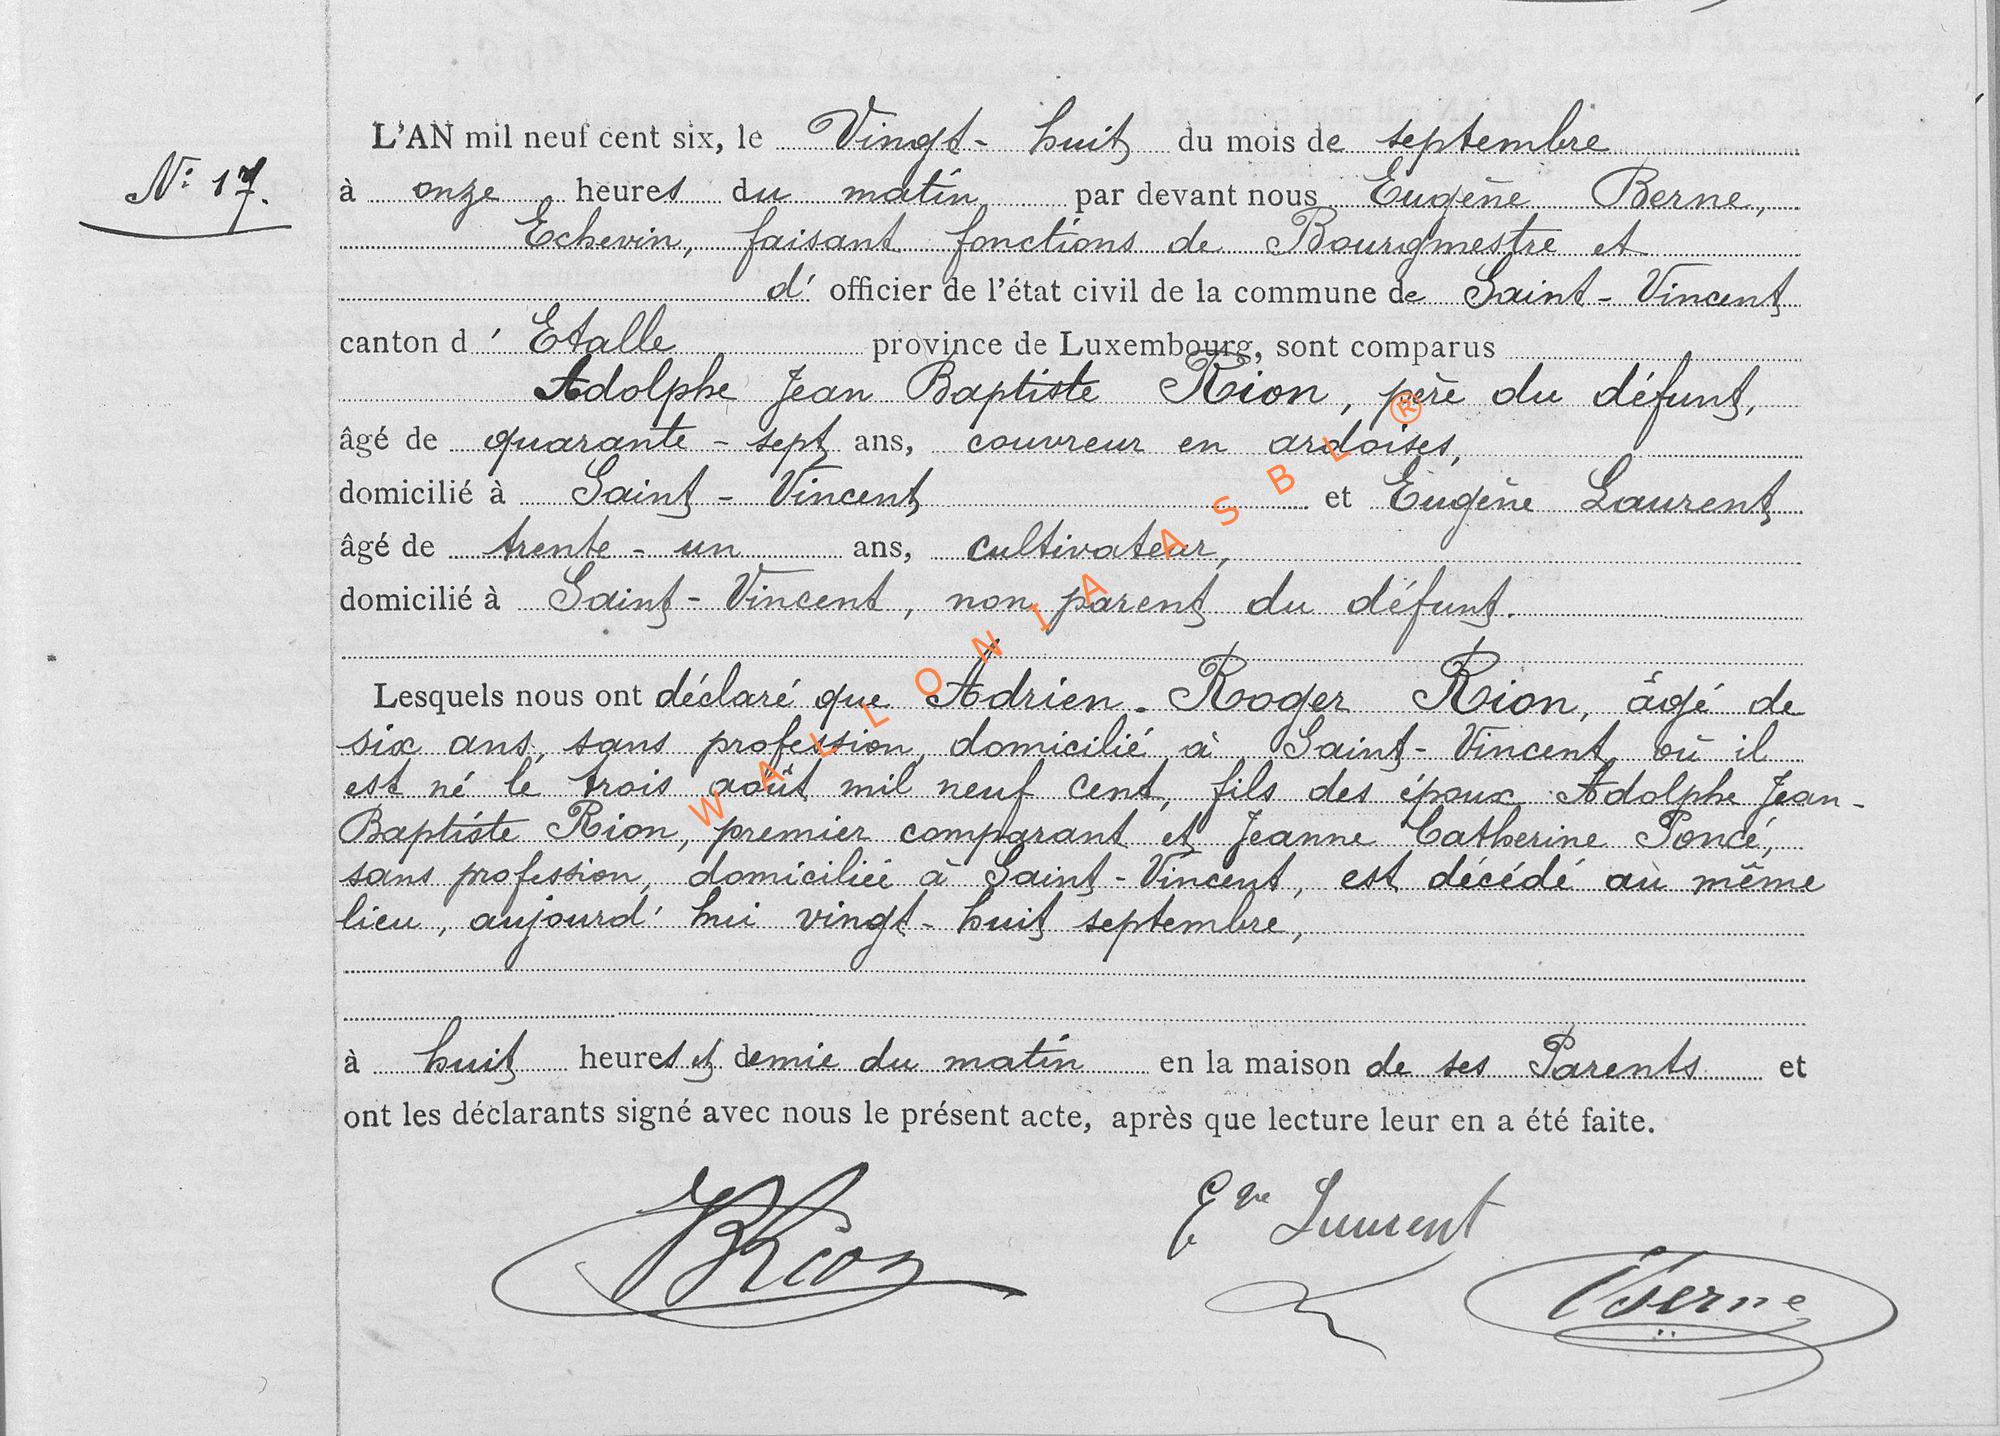 L'AN mil neuf cent six, le Vingt-huit du mois de septembre
N° 17.
à onze heures du matin par devant nous Eugène Berne,
Echevin, faisant fonctions de Bourgmestre et
d' officier de l'état civil de la commune de Saint-Vincent
canton d' Etalle province de Luxembourg, sont comparus
Adolphe Jean Baptiste Rion, père du défunt,
âgé de quarante-sept ans, couvreur en ardoises,
domicilié à Saint-Vincent et Eugène Laurent
âgé de trente-un ans, cultivateur,
domicilié à Saint-Vincent, non parent du défunt.
Lesquels nous ont déclaré que Adrien-Roger Rion, âgé de
six ans, sans profession, domicilié à Saint-Vincent où il
est né le trois août mil neuf cent, fils des époux Adolphe Jean-
Baptiste Rion, premier comparant et Jeanne Catherine Poncé,
sans profession, domiciliée à Saint-Vincent, est décédé au même
lieu, aujourd'hui vingt-huit septembre,
à huit heures et demie du matin en la maison de ses Parents et
ont les déclarants signé avec nous le présent acte, après que lecture leur en a été faite.
Egne Laurent
Rion
Berne
WALLONIA ASBL ®